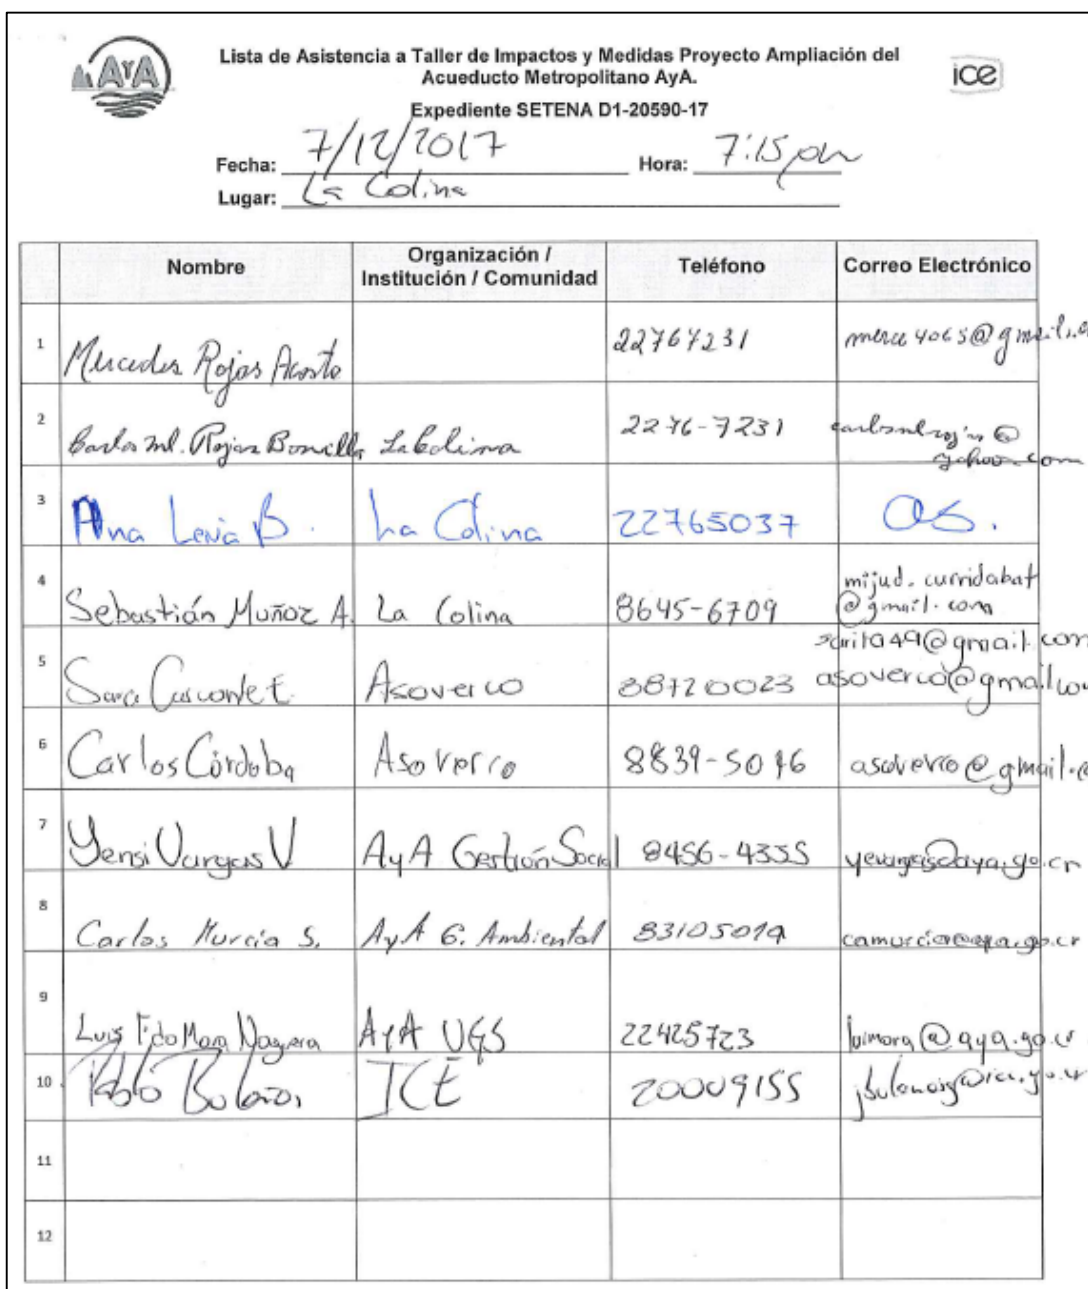 AyA
ice
Lista de Asistencia a Taller de Impactos y Medidas Proyecto Ampliación del
Acueducto Metropolitano AyA.
Expediente SETENA D1-20590-17
Fecha: 7/12/2017 Hora: 7:15 pm
Lugar: La Colina
Nombre Organización / Institución / Comunidad Teléfono Correo Electrónico
1 Mercedes Rojas Acosta 22767231
2 Carlos Ml. Rojas Bonilla La Colina 2276-7231
yahoo.com
3 Ana B. La Colina 22765037
4 Sebastián Muñoz A. La Colina 8645-6709 mijud.curridabat
@gmail.com
sarita49@gmail.com
5 Sara Asoverco 88720023 asoverco@gmail.com
6 Carlos Córdoba Asoverco 8839-5046 asoverco@gmail.c
7 Yensi Vargas V AyA Gestión Social 8456-4335 yevargas@aya.go.cr
8 Carlos Murcia S. AyA G. Ambiental 83105019 camurcia@aya.go.cr
9 Luis Fdo Mora AyA UGS 22425723 luimora@aya.go.cr
10 Pablo Bolaños ICE 20009155
11
12